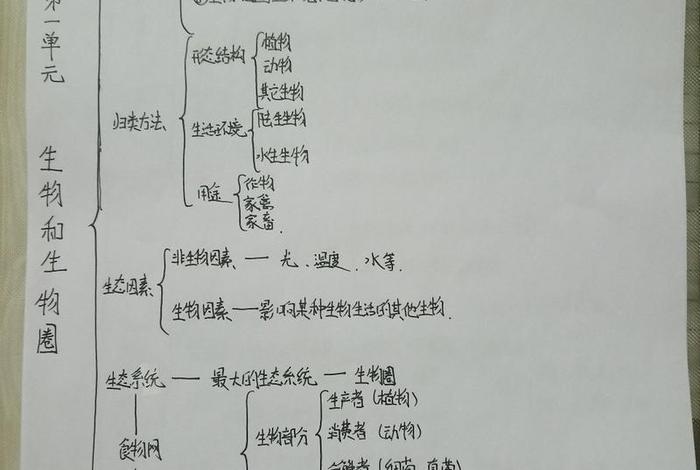 第一单元 生物和生物圈
归类方法
形态结构
植物
动物
其它生物
生活环境
陆生生物
水生生物
用途
作物
家禽
家畜.
生态因素
非生物因素 — 光、温度、水等.
生物因素 — 影响某种生物生活的其他生物.
生态系统 — 最大的生态系统 — 生物圈
食物网
生物部分
生产者 (植物)
消费者 (动物)